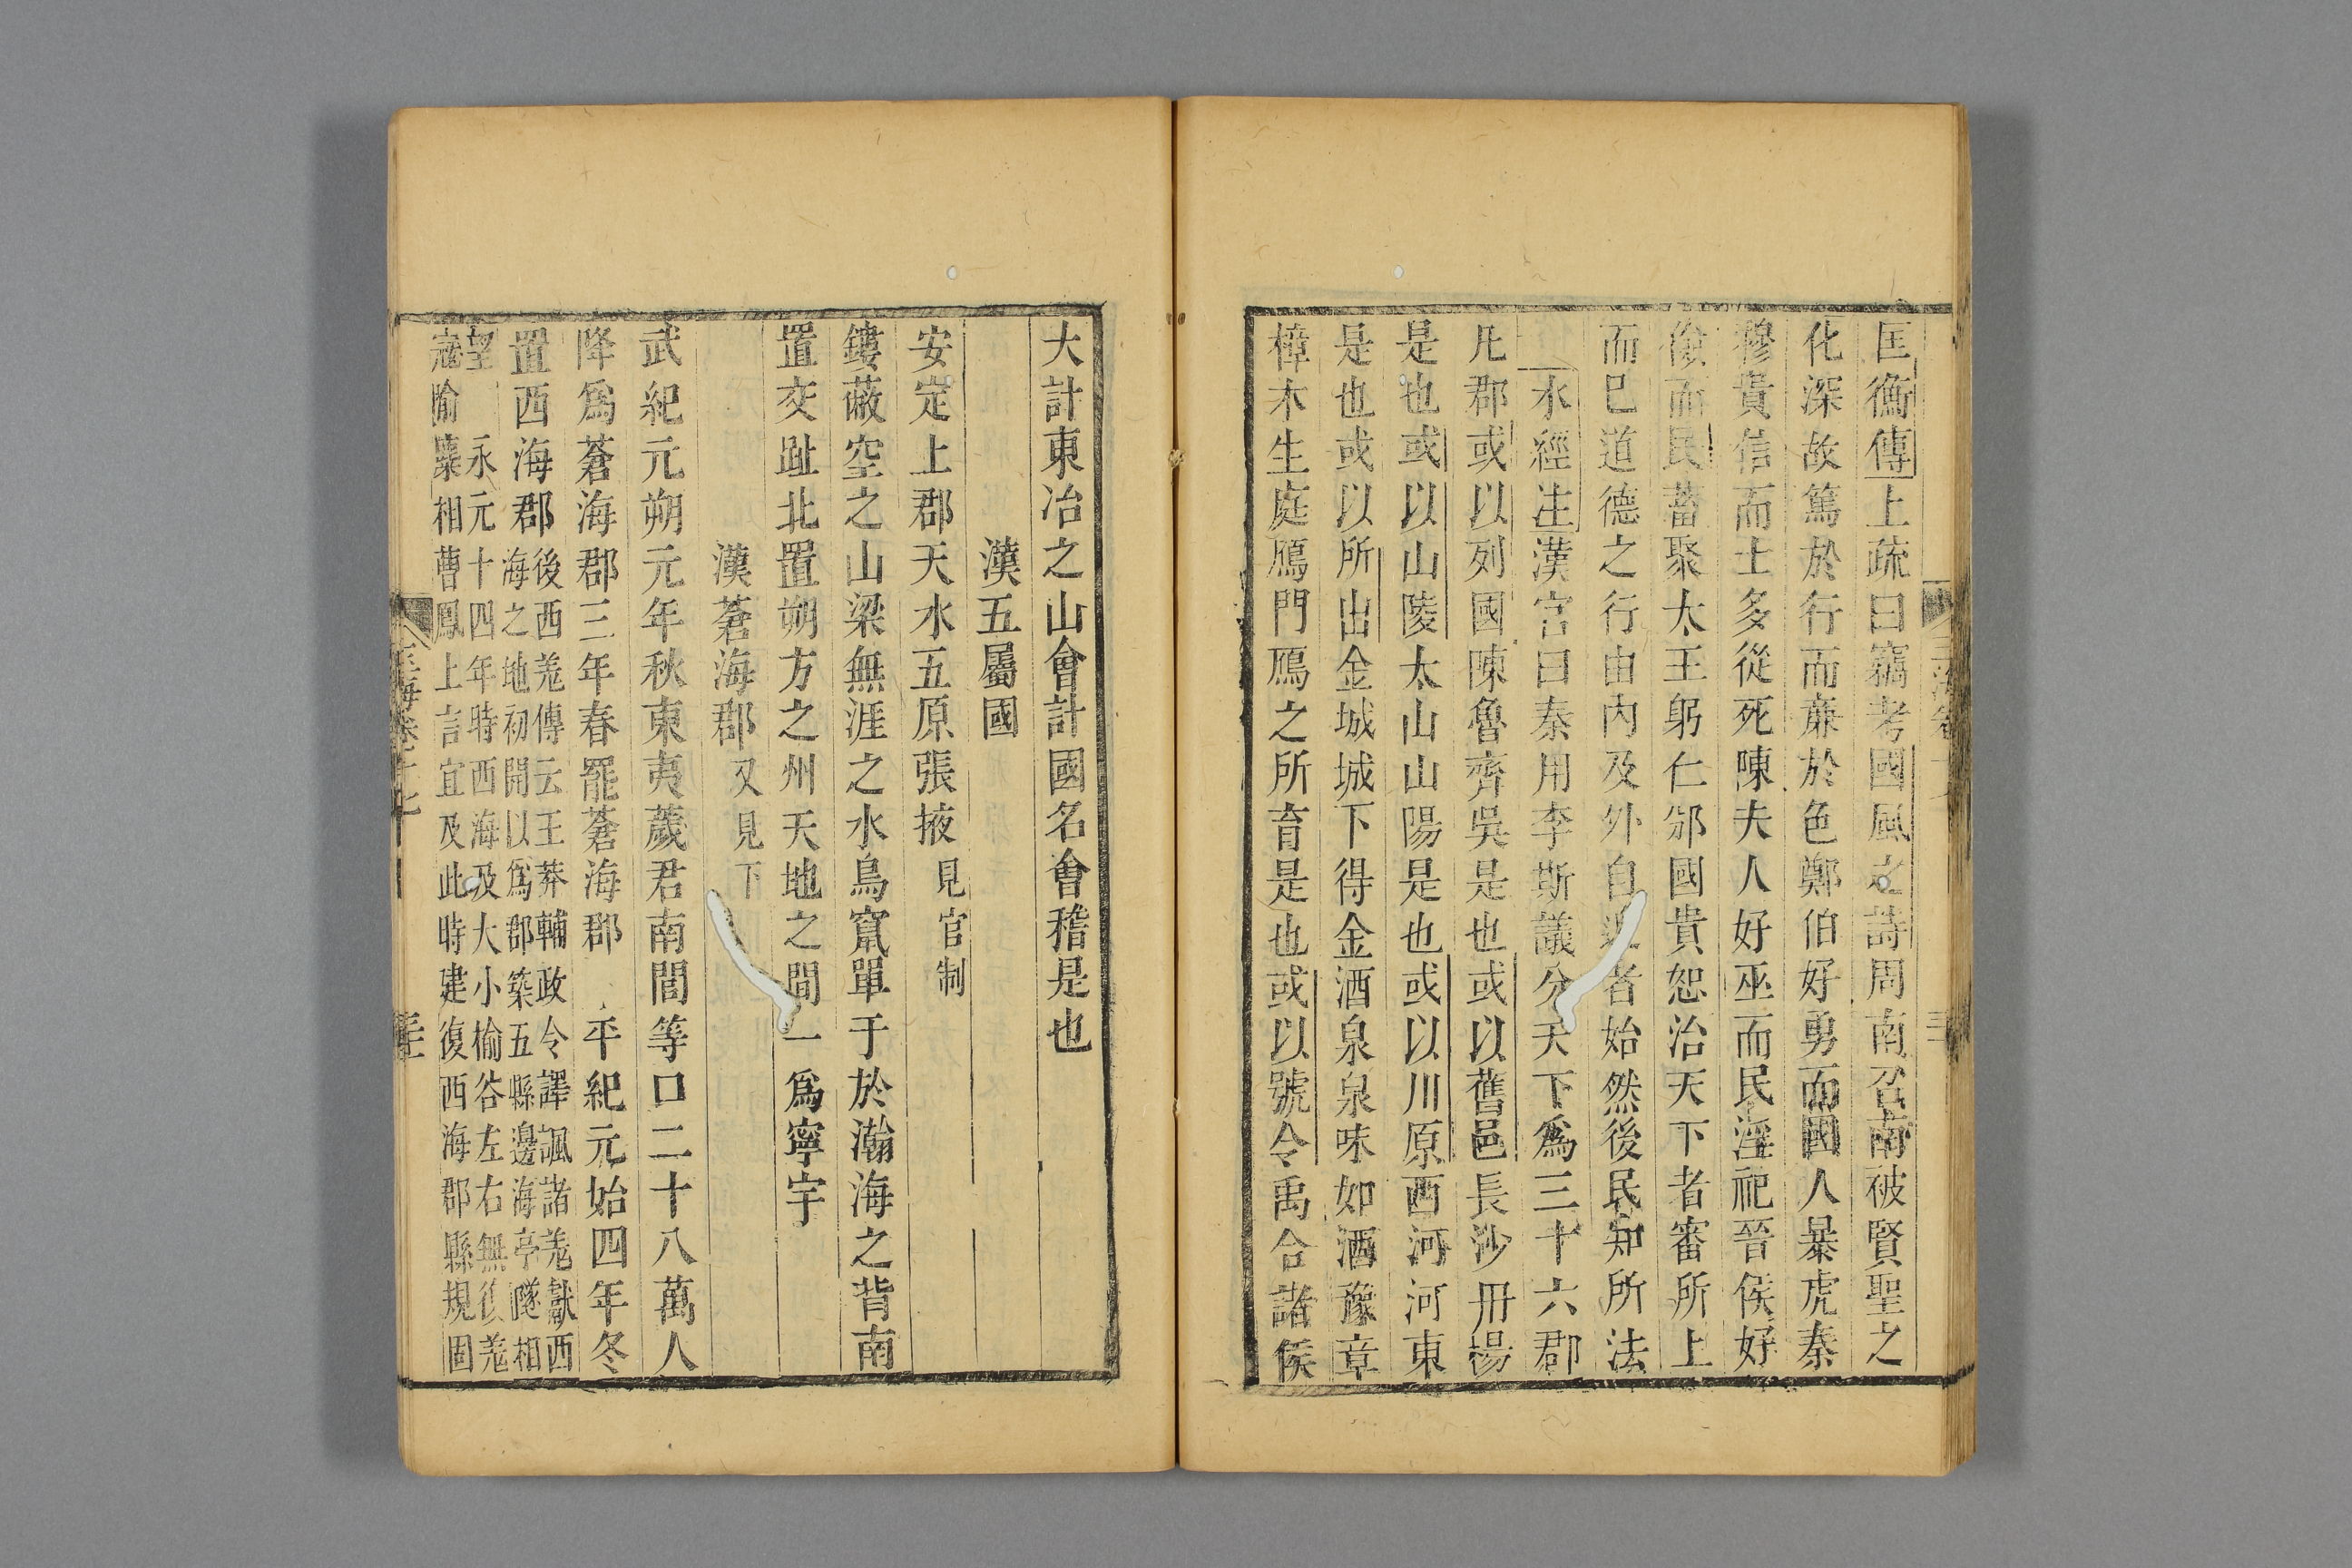 匡衡傳上疏曰竊考國風之詩周南召南被賢聖之
化深故篤於行而廉於色鄭伯好勇而國人暴虎秦
穆貴信而士多從死陳夫人好巫而民淫祀晉侯好
儉而民蓄聚太王躬仁邠國貴恕治天下者審所上
而已道德之行由内及外自近者始然後民知所法
水經注漢官曰秦用李斯議分天下爲三十六郡
凡郡或以列國陳魯齊吳是也或以舊邑長沙丹楊
是也或以山陵太山山陽是也或以川原西河河東
是也或以所出金城城下得金酒泉泉味如酒豫章
樟木生庭鴈門鴈之所育是也或以號令禹合諸侯
大計東冶之山會計國名會稽是也
漢五屬國
安定上郡天水五原張掖見官制
鏤蔽空之山梁無涯之水鳥竄單于於瀚海之背南
置交趾北置朔方之州天地之間一爲寧宇
漢蒼海郡又見下
武紀元朔元年秋東夷薉君南閭等口二十八萬人
降爲蒼海郡三年春罷蒼海郡 平紀元始四年冬
置西海郡後西羗傳云王莽輔政令譯諷諸羗獻西
海之地初開以爲郡築五縣邊海亭隧相
望 永元十四年時西海及大小榆谷左右無復羗
寇隃麋相曹鳳上言宜及此時建復西海郡縣規固
玉海卷十七